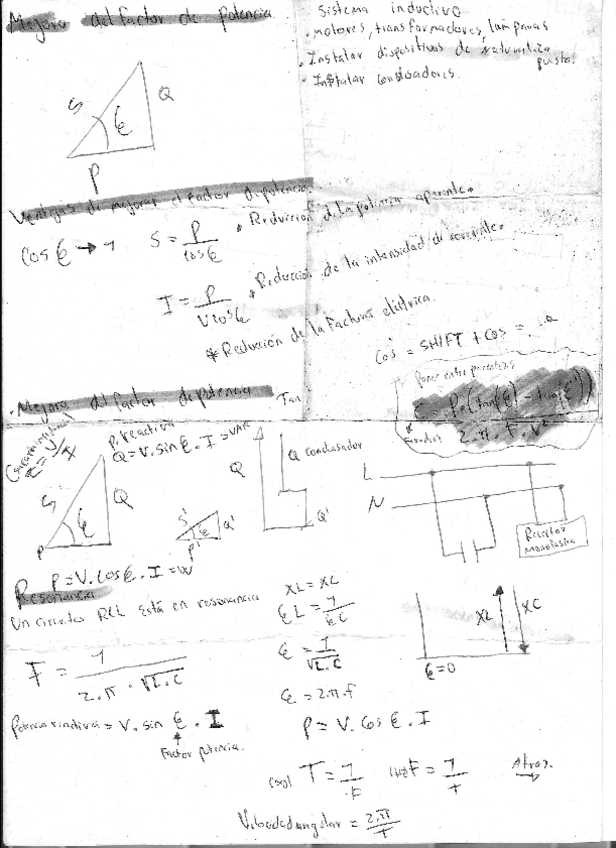 Mejora del factor de potencia
S
Q
φ
P
Sistema inductivo
· motores, transformadores, lamparas
· Instalar dispositivos de
· Instalar condensadores.
Ventajas de mejorar el factor de potencia
Cos φ → 1
S = P / cos φ
* Reducción de la potencia aparente.
I = P / V cos φ
* Reducción de la intensidad de corriente.
* Reducción de la Factura eléctrica.
Cos = SHIFT + Cos =
Poner entre parentesis
· Mejora del factor de potencia
Tan
= P·(tan(φ) - tan(φ'))
2·π·F·V²
Faradios
τ = y/x
P. reactiva
Q = V. sin φ . I = VAR
S
Q
φ
P
S'
φ
Q'
P'
Q
Q condensador
Q'
L
N
Receptor monofasico
P = V. cos φ . I = W
Resonancia
Un circuito RCL está en resonancia
F = 1 / 2·π·√L.C
XL = XC
φL = 1 / φC
φ = 1 / √L.C
φ = 2·π.f
P = V. Cos φ . I
XL
XC
φ=0
Potencia = V. sin φ . I
Factor potencia.
(sg) T = 1 / F
(Hz) F = 1 / T
Atras.
Velocidad angular = 2.π / T